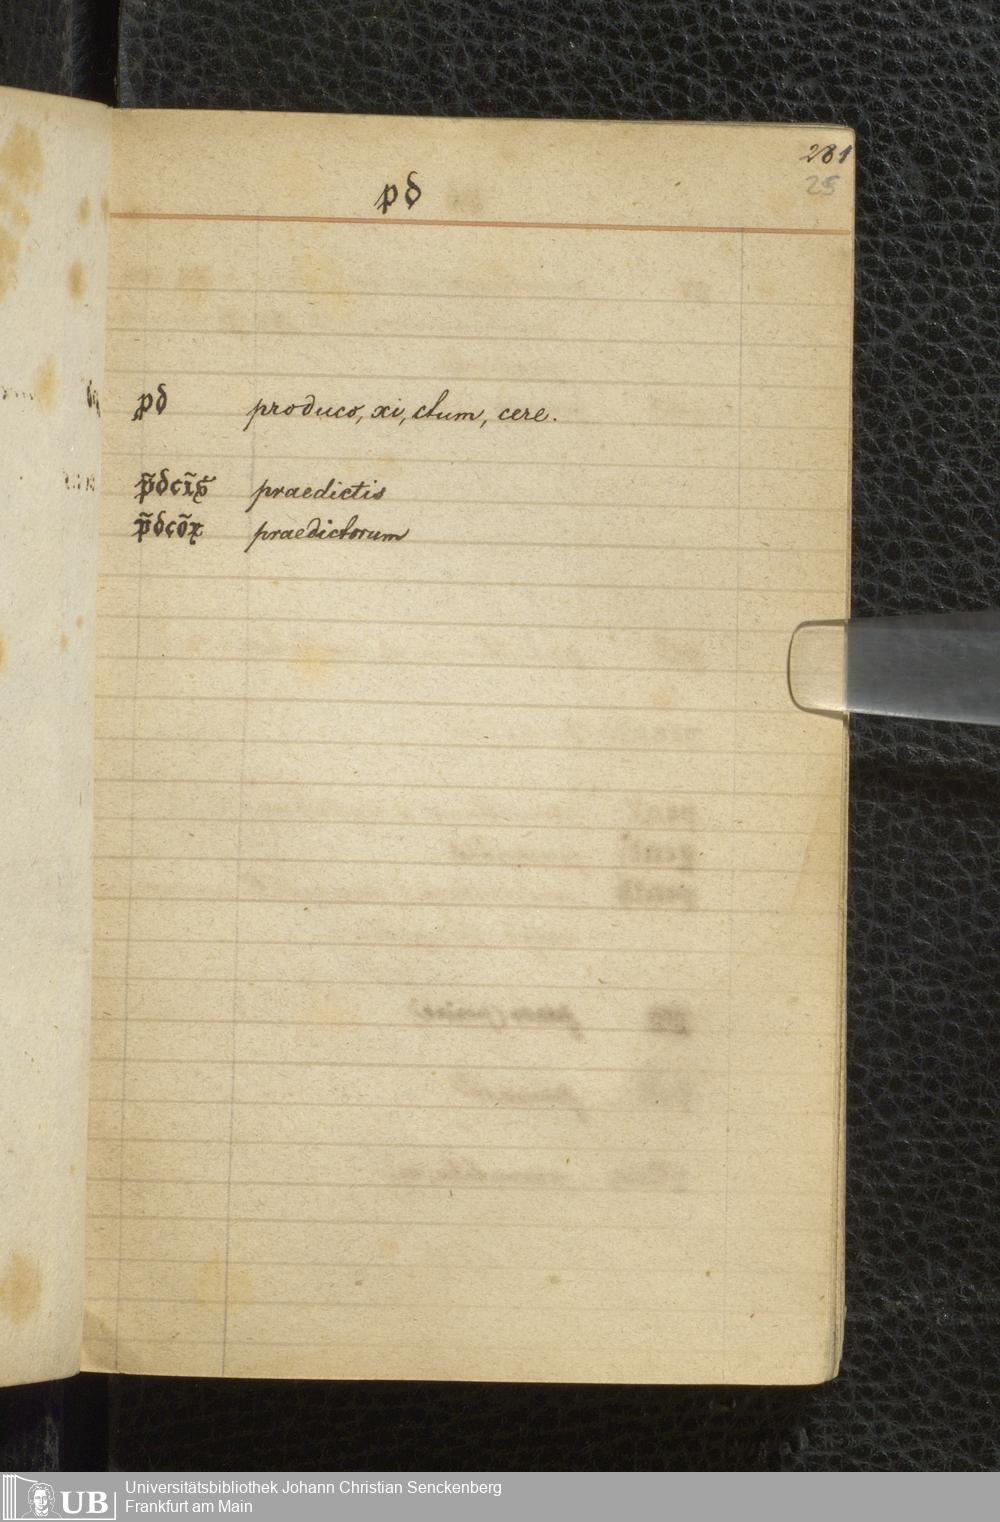 281
25
pd
pd produco, xi, ctum, cere.
p̃dcĩs praedictis
p̃dcõꝝ praedictorum
UB Universitätsbibliothek Johann Christian Senckenberg
Frankfurt am Main